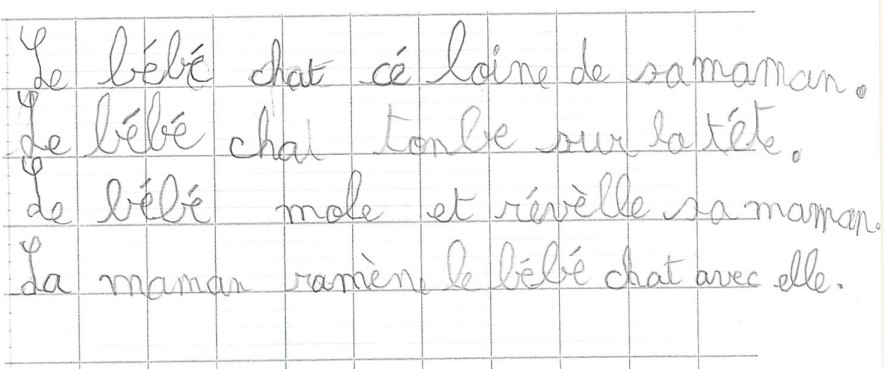 Le bébé chat cé loine de sa maman.
Le bébé chat tonbe sur la tété.
Le bébé mole et révèlle sa maman.
La maman ramèn le bébé chat avec elle.